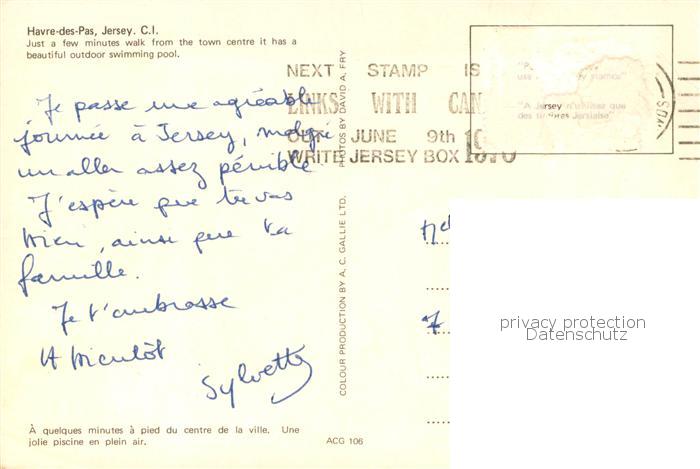 Havre-des-Pas, Jersey. C.I.
Just a few minutes walk from the town centre it has a
beautiful outdoor swimming pool.
NEXT STAMP IS
LINKS WITH CAN
OUT JUNE 9th
WRITE JERSEY BOX
"A Jersey n'utilisez que
des timbres Jersiais"
Je passe une agréable
journée à Jersey, malgré
un aller assez pénible
J'espère que tu vas
bien, ainsi que ta
famille.
Je t'embrasse
A bientôt
Sylvette
PHOTOS BY DAVID A. FRY
COLOUR PRODUCTION BY A. C. GALLIE LTD.
7
privacy protection
Datenschutz
À quelques minutes à pied du centre de la ville. Une
jolie piscine en plein air.
ACG 106